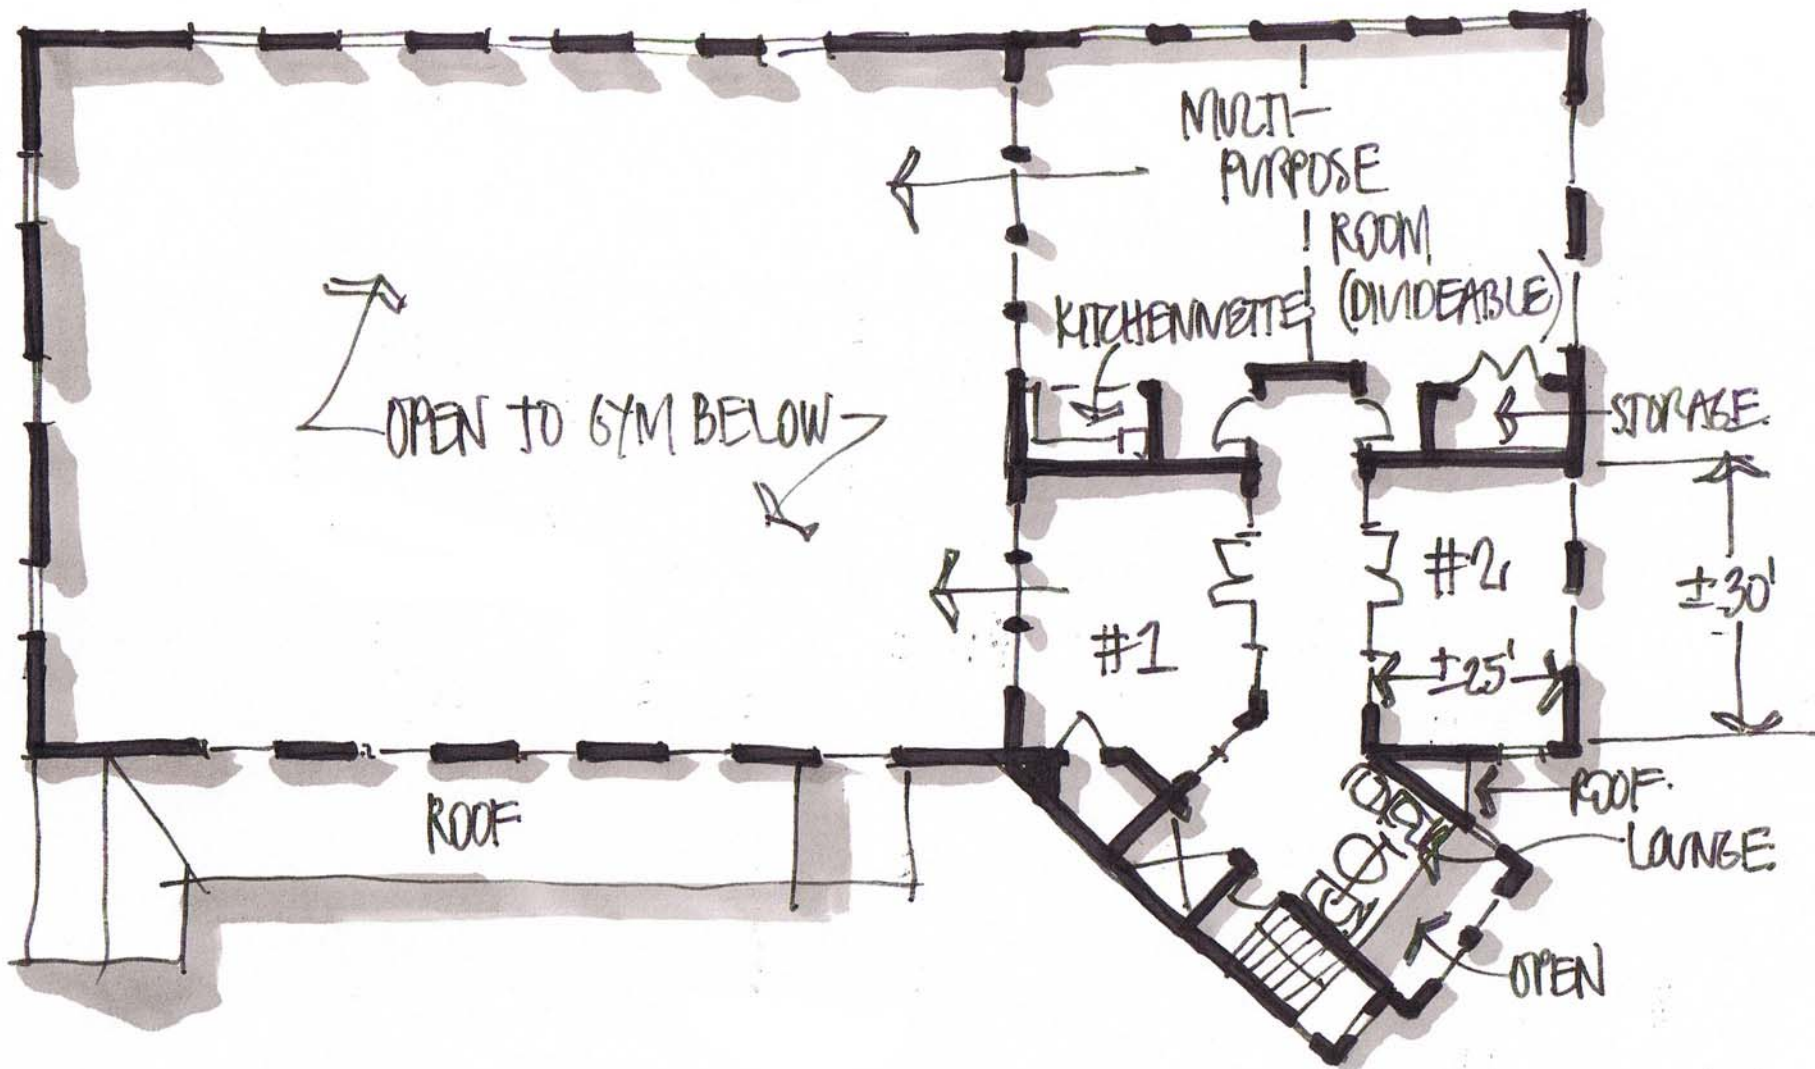 MULTI-
PURPOSE
ROOM
(DIVIDEABLE)
KITCHENNETTE
STORAGE.
OPEN TO GYM BELOW
#1
#2
±30'
±25'
ROOF
ROOF.
LOUNGE.
OPEN